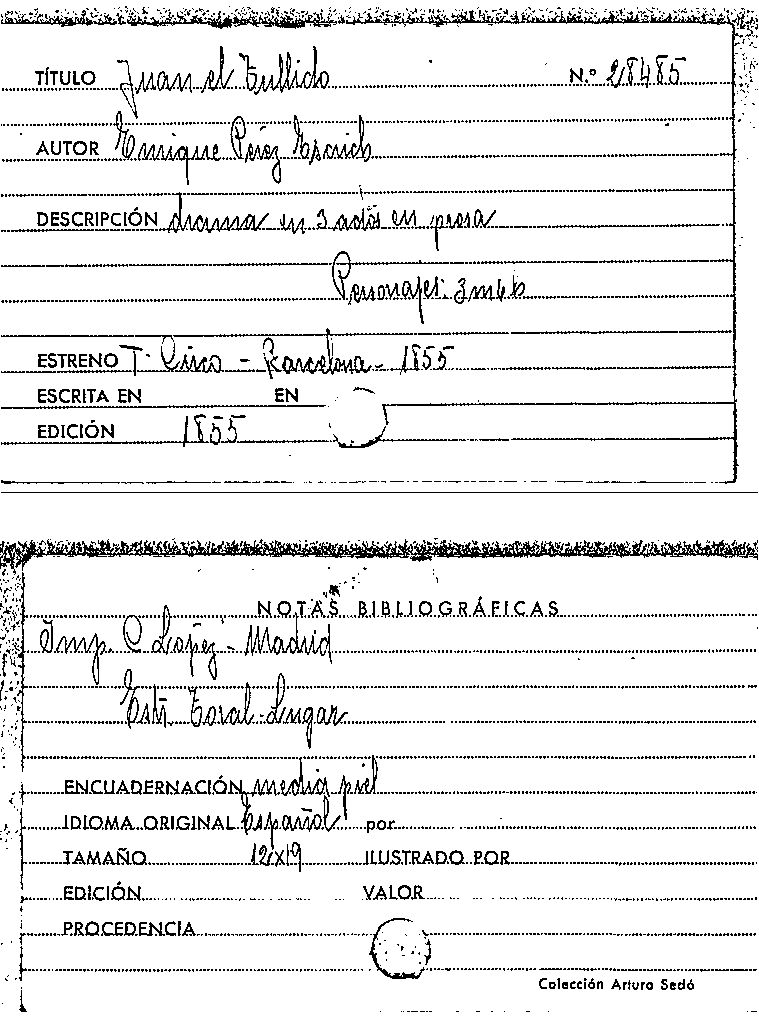 TÍTULO Juan el Tullido N.º 28485
AUTOR Enrique Pérez Escrich
DESCRIPCIÓN drama en 3 actos en prosa
Personajes: 3 m 6 h
ESTRENO T. Circo - Barcelona - 1855
ESCRITA EN EN
EDICIÓN 1855
NOTAS BIBLIOGRÁFICAS
Imp. C López - Madrid
Toral - Lugar
ENCUADERNACIÓN media piel
IDIOMA ORIGINAL Español por
TAMAÑO 12x19 ILUSTRADO POR
EDICIÓN VALOR
PROCEDENCIA
Colección Arturo Sedó